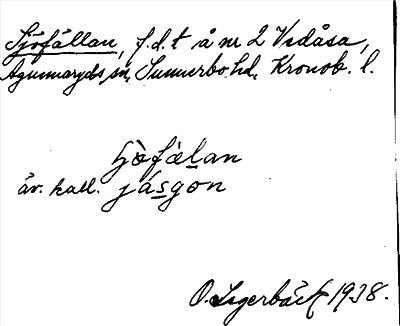 Sjöfällan, f.d.t å nr 2 Vedåsa,
Agunnaryds sn, Sunnerbo hd, Kronob. l.
fjö̀fälan
äv. kall. jásgon
O. Lagerbäck 1938.